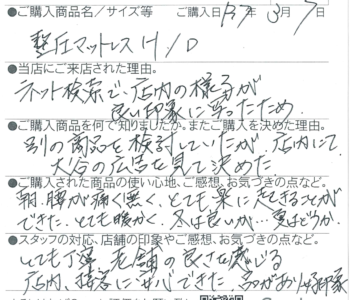 ●ご購入商品名/サイズ等 ご購入日 R7年 3月 7日
整圧マットレス H/D
●当店にご来店された理由。
ネット検索で、店内の様子が
良い印象に写ったため
●ご購入商品を何で知りましたか。またご購入を決めた理由。
別の商品を検討していたが、店内にて
大谷の広告を見て決めた
●ご購入された商品の使い心地、ご感想、お気づきの点など。
朝、腰が痛く無く、とても楽に起きることが
できた。とても暖かく、冬は良いが…夏はどうか。
●スタッフの対応、店舗の印象やご感想、お気づきの点など。
とても丁寧 老舗の良さを感じる
店内、接客に安心できた 品があり好印象